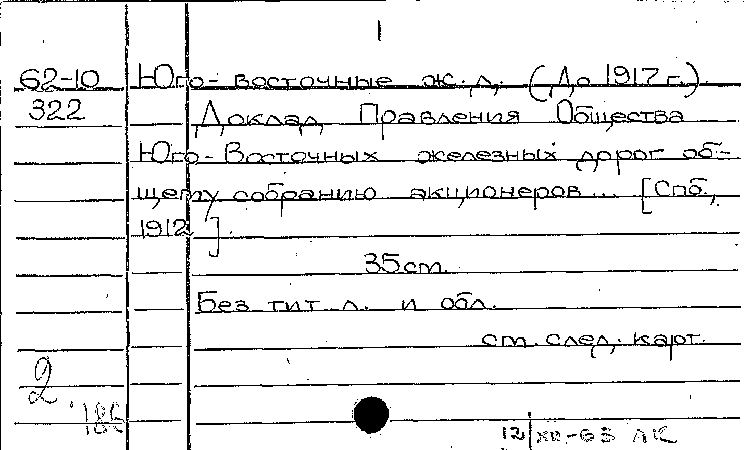 1
62-10 Юго-восточные ж.д. (До 1917 г.).
322 Доклад Правления Общества
Юго-Восточных железных дорог об-
щему собранию акционеров... [Спб.,
1912].
35 ст.
Без тит л. и обл.
ст. след. карт.
2
12/XII-63 ЛК